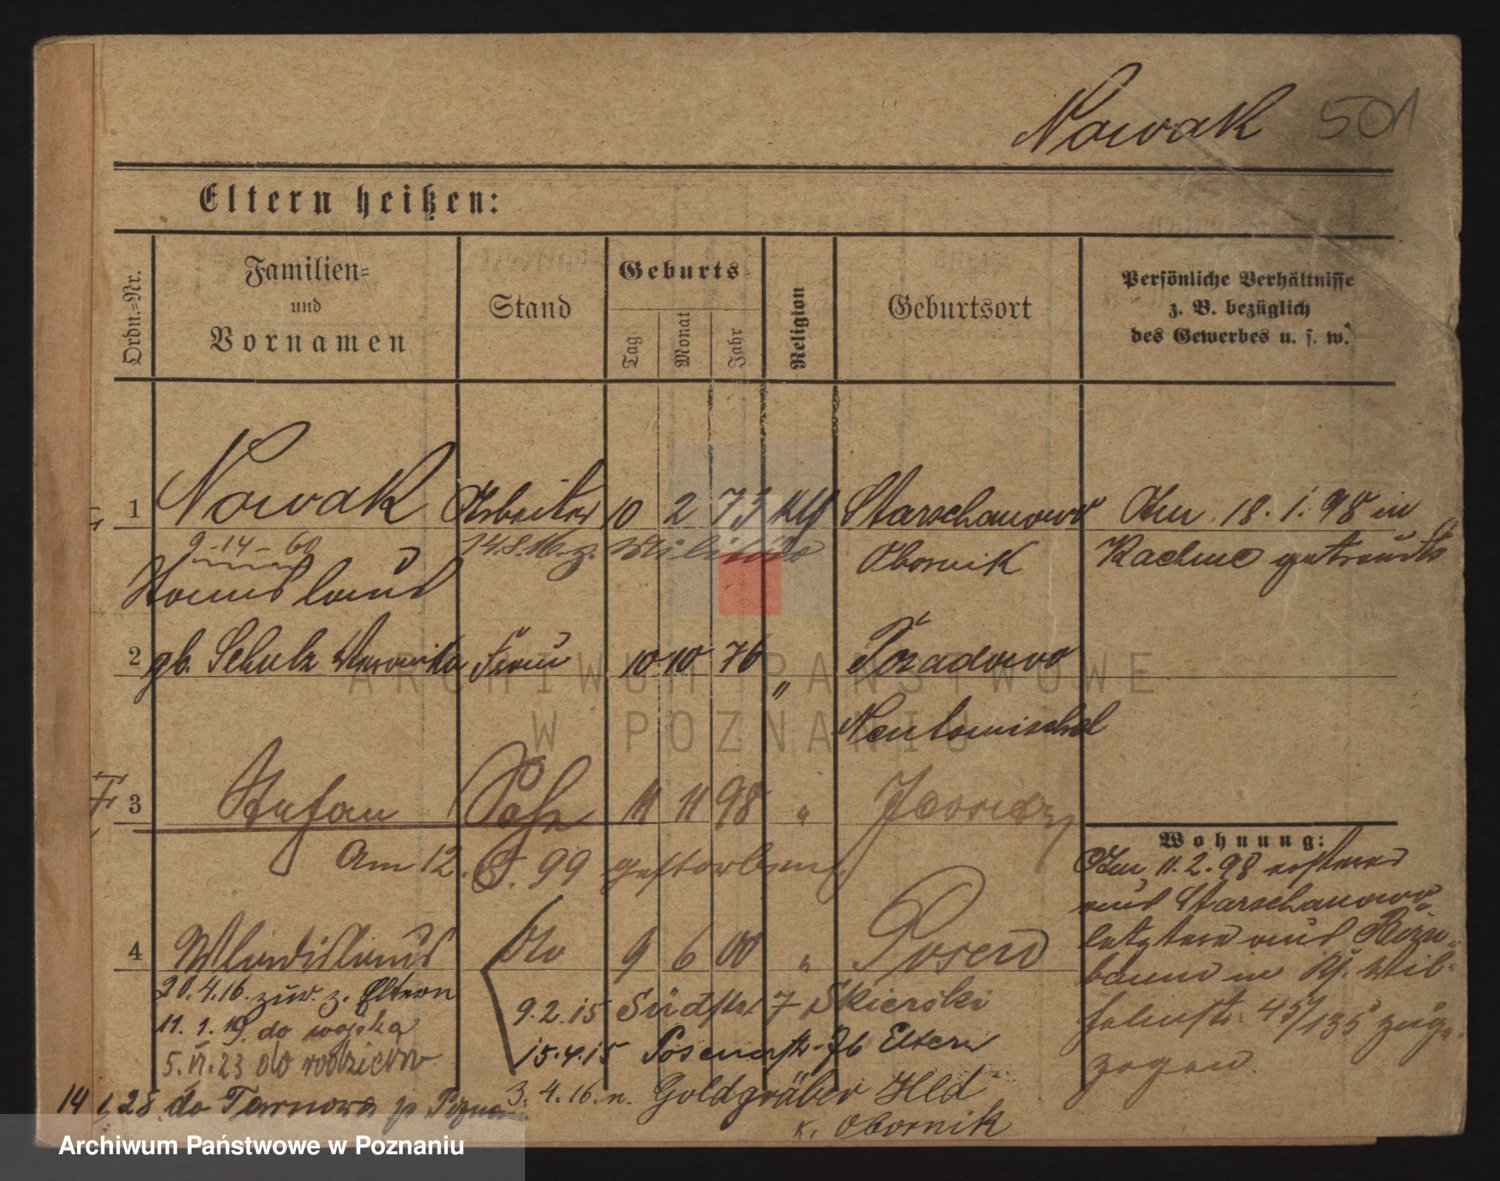 Nowak 501
Eltern heißen:
Ordn.-Nr.
Familien-
und
Vornamen
Stand
Geburts-
Tag
Monat
Jahr
Religion
Geburtsort
Persönliche Verhältnisse
z. B. bezüglich
des Gewerbes u. s. w.
1 Nowak Arbeiter 10 2 73 kth Starschanowo Am 18. 1. 98 in
9-14-60 14.8.16. z.
Stanislaus Obornik getraut
2 gb. Schulz Veronika Frau 10 10 76 " Pozadowo
Neutomischel
3 Stefan Sohn 11 11 98 " Jersitz
Am 12. 8. 99 gestorben.
Wohnung:
Am 11. 2. 98 ersterer
aus Starschanowo
letztere aus Birn-
baum in Wil-
helmstr. 45/135 zuge-
zogen.
4 Wladislaus Do 9 6 00 " Posen
20.4.16. zur. z. Eltern
9.2.15 Südstr. 7 Skierski
11. 1. 19. do wojska
15.4.15 Posenerstr. b Eltern
5. VI. 23 do rodziców
3. 4. 16. n. Goldgräber Hld
14 1 28 do Tarnowa p. Poznan
K. Obornik
ARCHIWUM PAŃSTWOWE
W POZNANIU
Archiwum Państwowe w Poznaniu